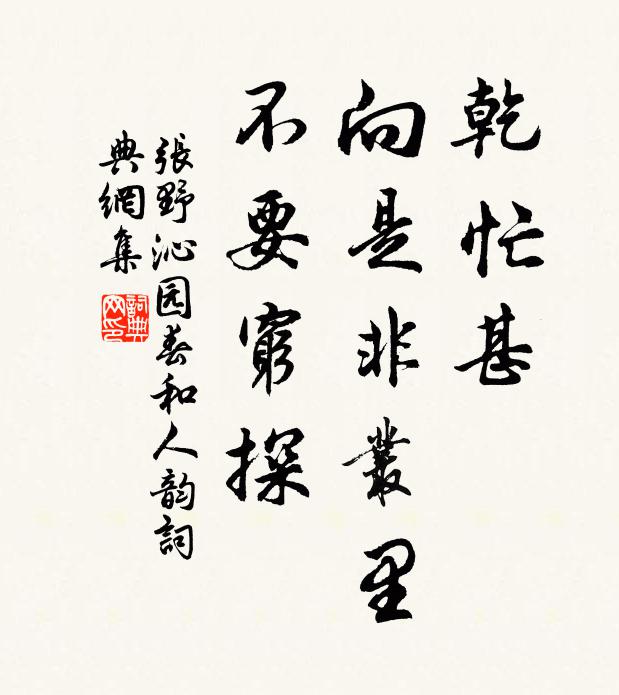 乾忙甚
向是非叢里
不要窮探
張野沁园春和人韵詞
典網集
詞典网印